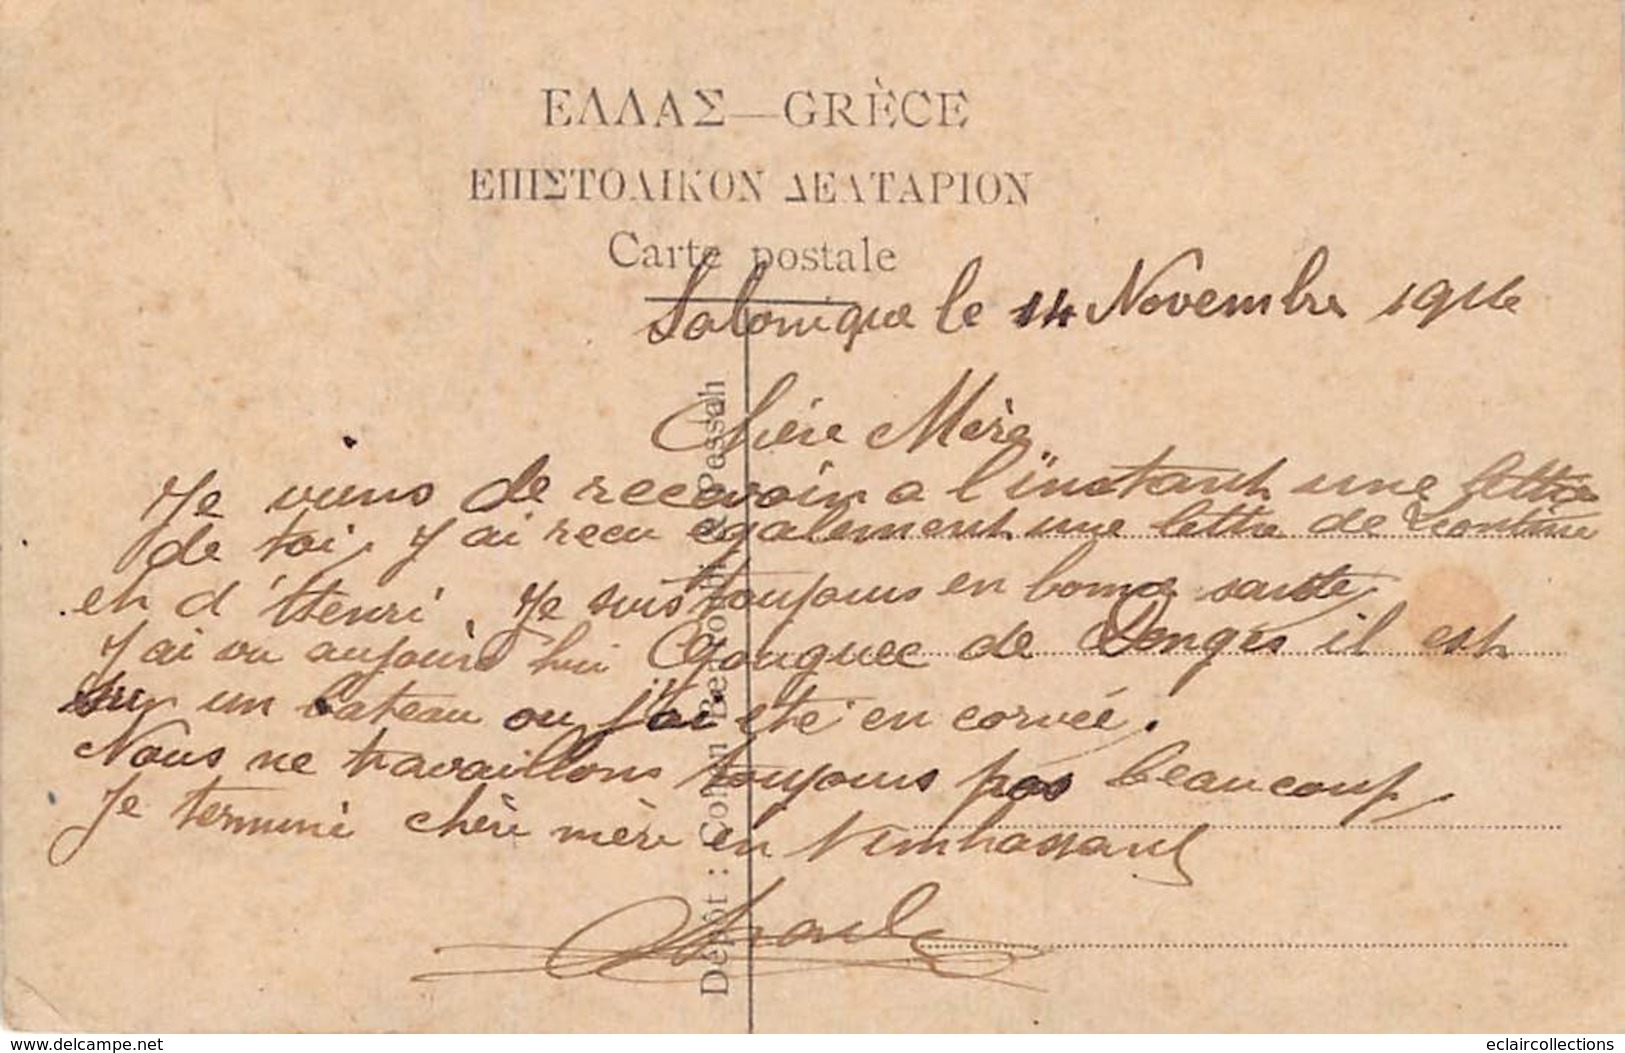 ΕΛΛΑΣ — GRÈCE
ΕΠΙΣΤΟΛΙΚΟΝ ΔΕΛΤΑΡΙΟΝ
Carte postale
Salonique le 14 Novembre 1916
Chère Mère
Je viens de recevoir a l'instant une lettre
de toi, J'ai recu egalement une lettre de Leontine
et d'Henri. Je suis toujours en bonne sante,
J'ai vu aujourd hui Gouguec de Donges il est
sur un bateau ou j'ai eté en corvée.
Nous ne travaillons toujours pas beaucoup,
Je termine chère mère en t'embrassant
Dépôt : Cohen Passah
delcampe.net
eclaircollections